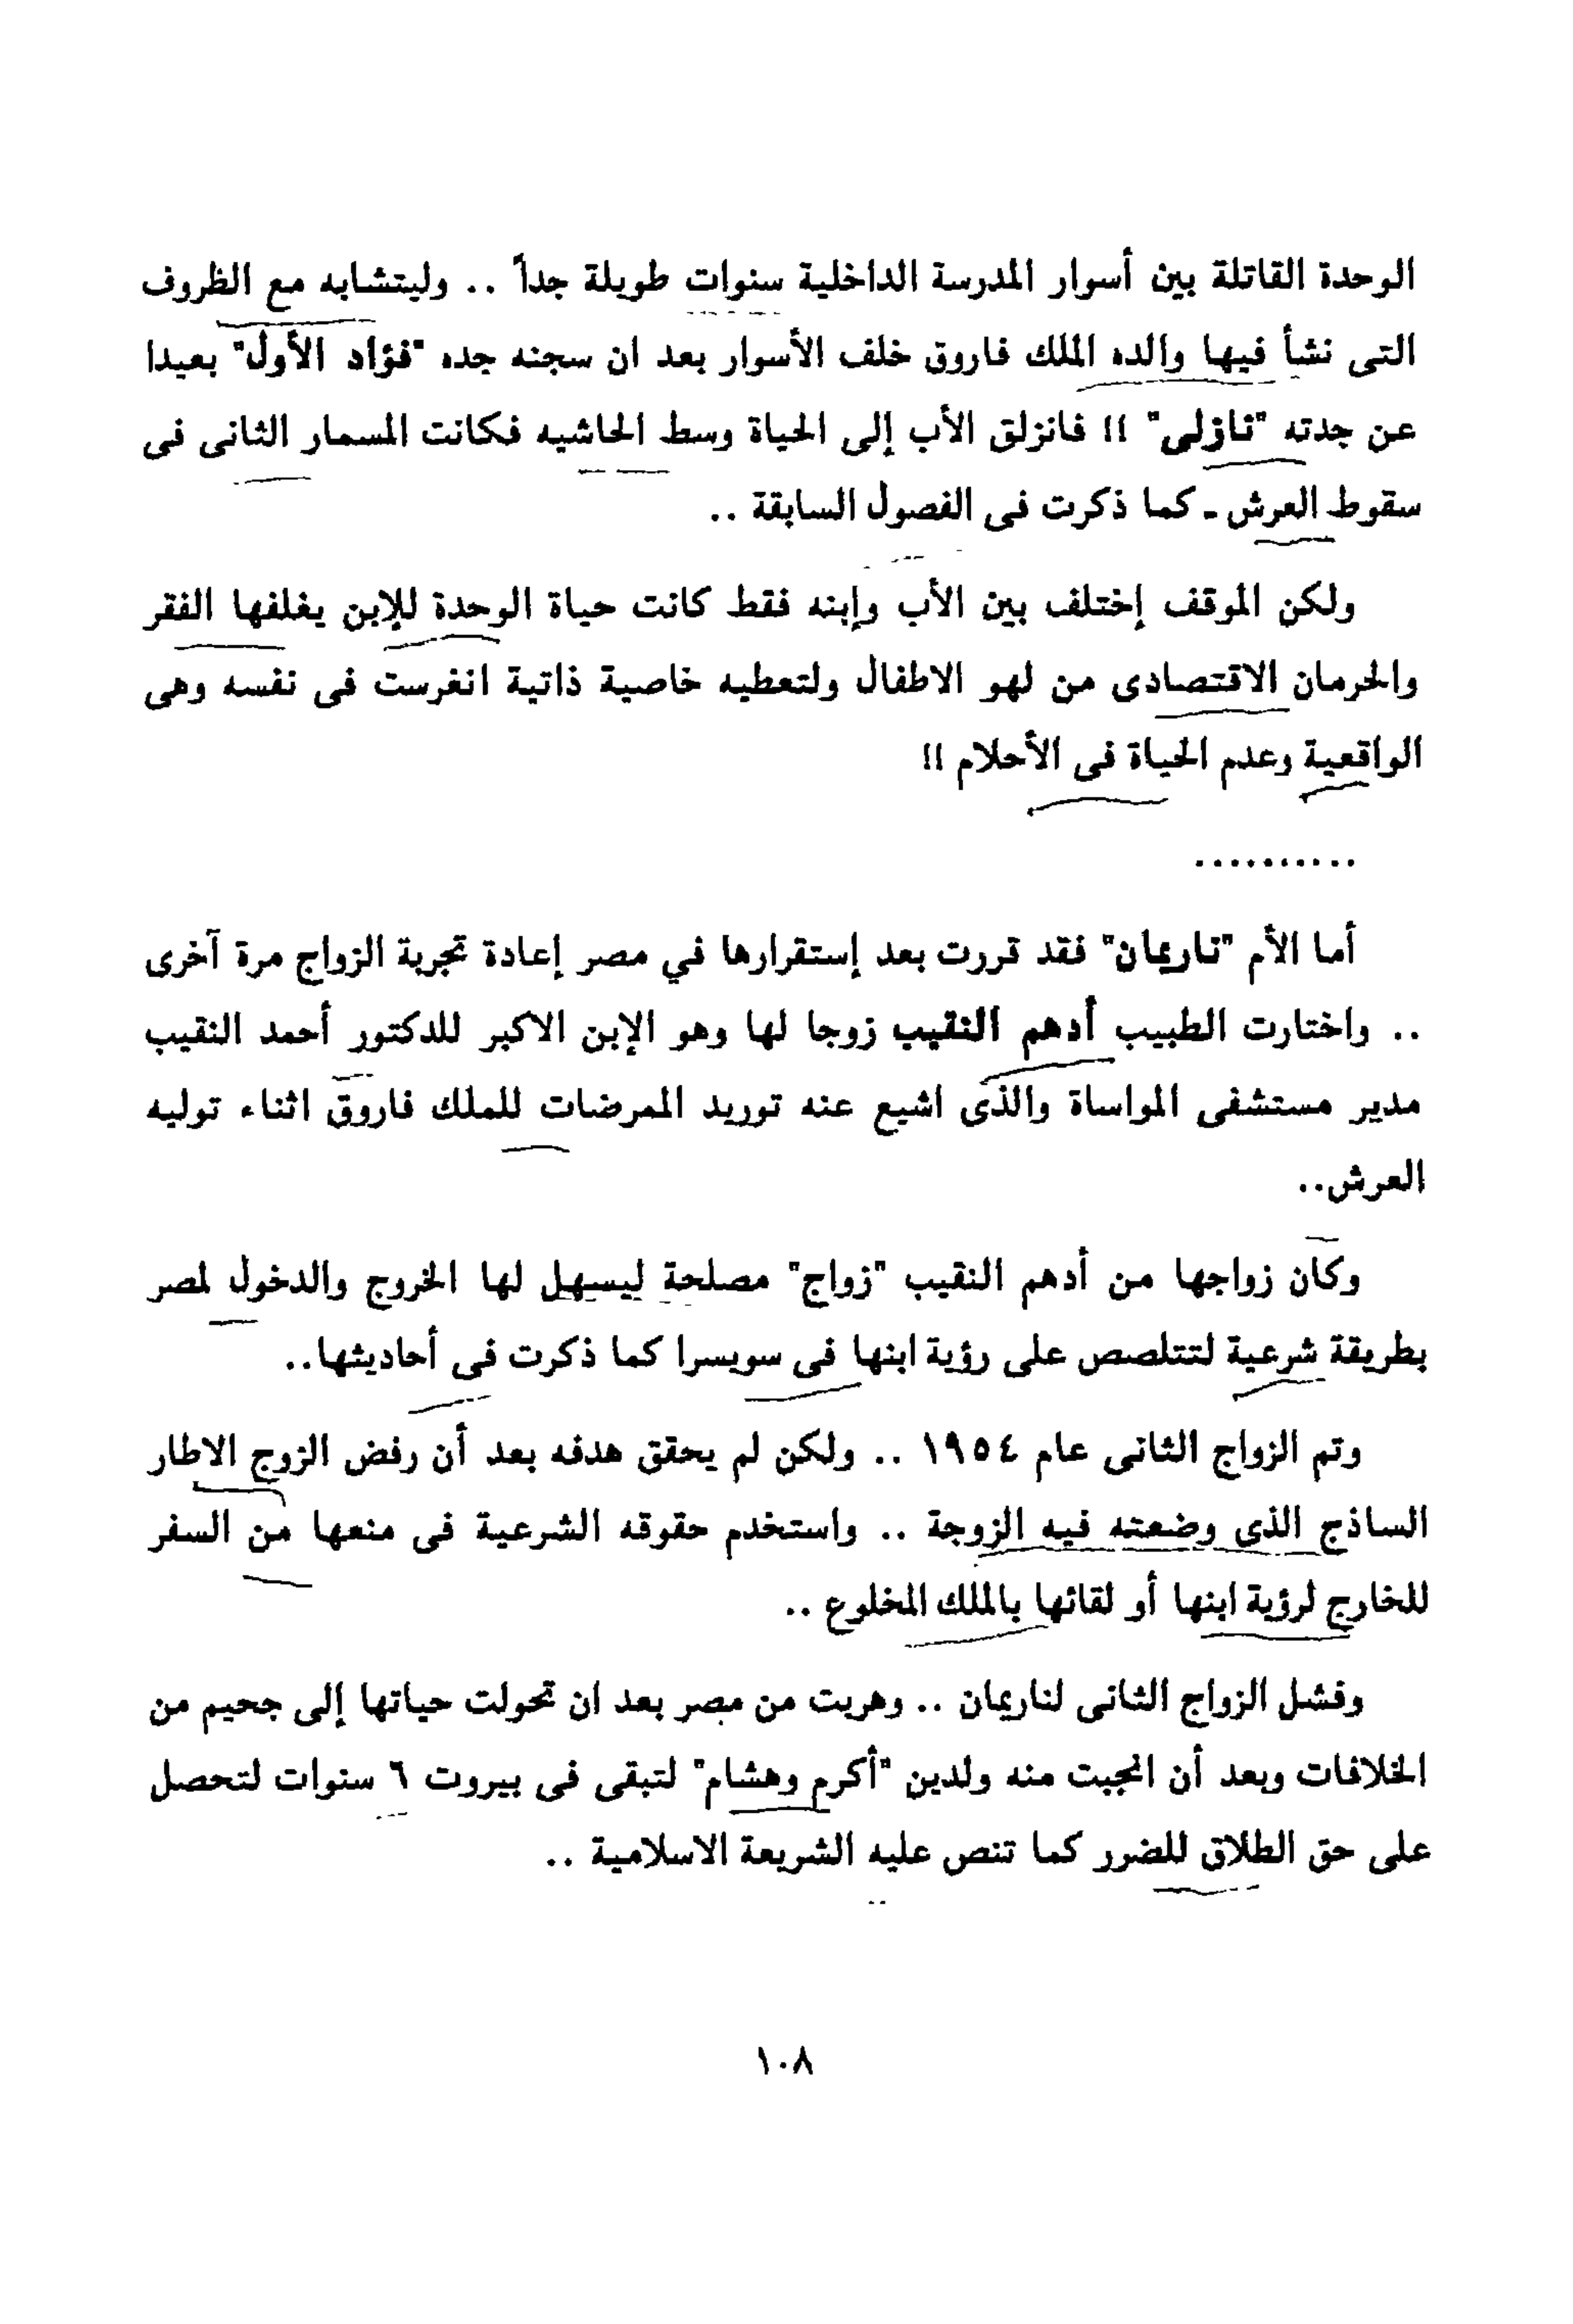 الوحدة القاتلة بين أسوار المدرسة الداخلية سنوات طويلة جداً .. وليتشابه مع الظروف
التى نشأ فيها والده الملك فاروق خلف الأسوار بعد ان سجنه جده "فؤاد الأول" بعيدا
عن جدته "نازلى" !! فانزلق الأب إلى الحياة وسط الحاشيه فكانت المسمار الثانى فى
سقوط العرش - كما ذكرت فى الفصول السابقة ..
ولكن الموقف إختلف بين الأب وإبنه فقط كانت حياة الوحدة للإبن يغلفها الفقر
والحرمان الاقتصادى من لهو الاطفال ولتعطيه خاصية ذاتية انغرست فى نفسه وهى
الواقعية وعدم الحياة فى الأحلام !!
..........
أما الأم "ناريمان" فقد قررت بعد إستقرارها في مصر إعادة تجربة الزواج مرة آخرى
.. واختارت الطبيب أدهم النقيب زوجا لها وهو الإبن الاكبر للدكتور أحمد النقيب
مدير مستشفى المواساة والذى اشيع عنه توريد الممرضات للملك فاروق اثناء توليه
العرش..
وكان زواجها من أدهم النقيب "زواج" مصلحة ليسهل لها الخروج والدخول لمصر
بطريقة شرعية لتتلصص على رؤية ابنها فى سويسرا كما ذكرت فى أحاديثها..
وتم الزواج الثانى عام ١٩٥٤ .. ولكن لم يحقق هدفه بعد أن رفض الزوج الاطار
الساذج الذى وضعته فيه الزوجة .. واستخدم حقوقه الشرعية فى منعها من السفر
للخارج لرؤية ابنها أو لقائها بالملك المخلوع ..
وفشل الزواج الثانى لناريمان .. وهربت من مصر بعد ان تحولت حياتها إلى جحيم من
الخلافات وبعد أن انجبت منه ولدين "أكرم وهشام" لتبقى فى بيروت ٦ سنوات لتحصل
على حق الطلاق للضرر كما تنص عليه الشريعة الاسلامية ..
١٠٨